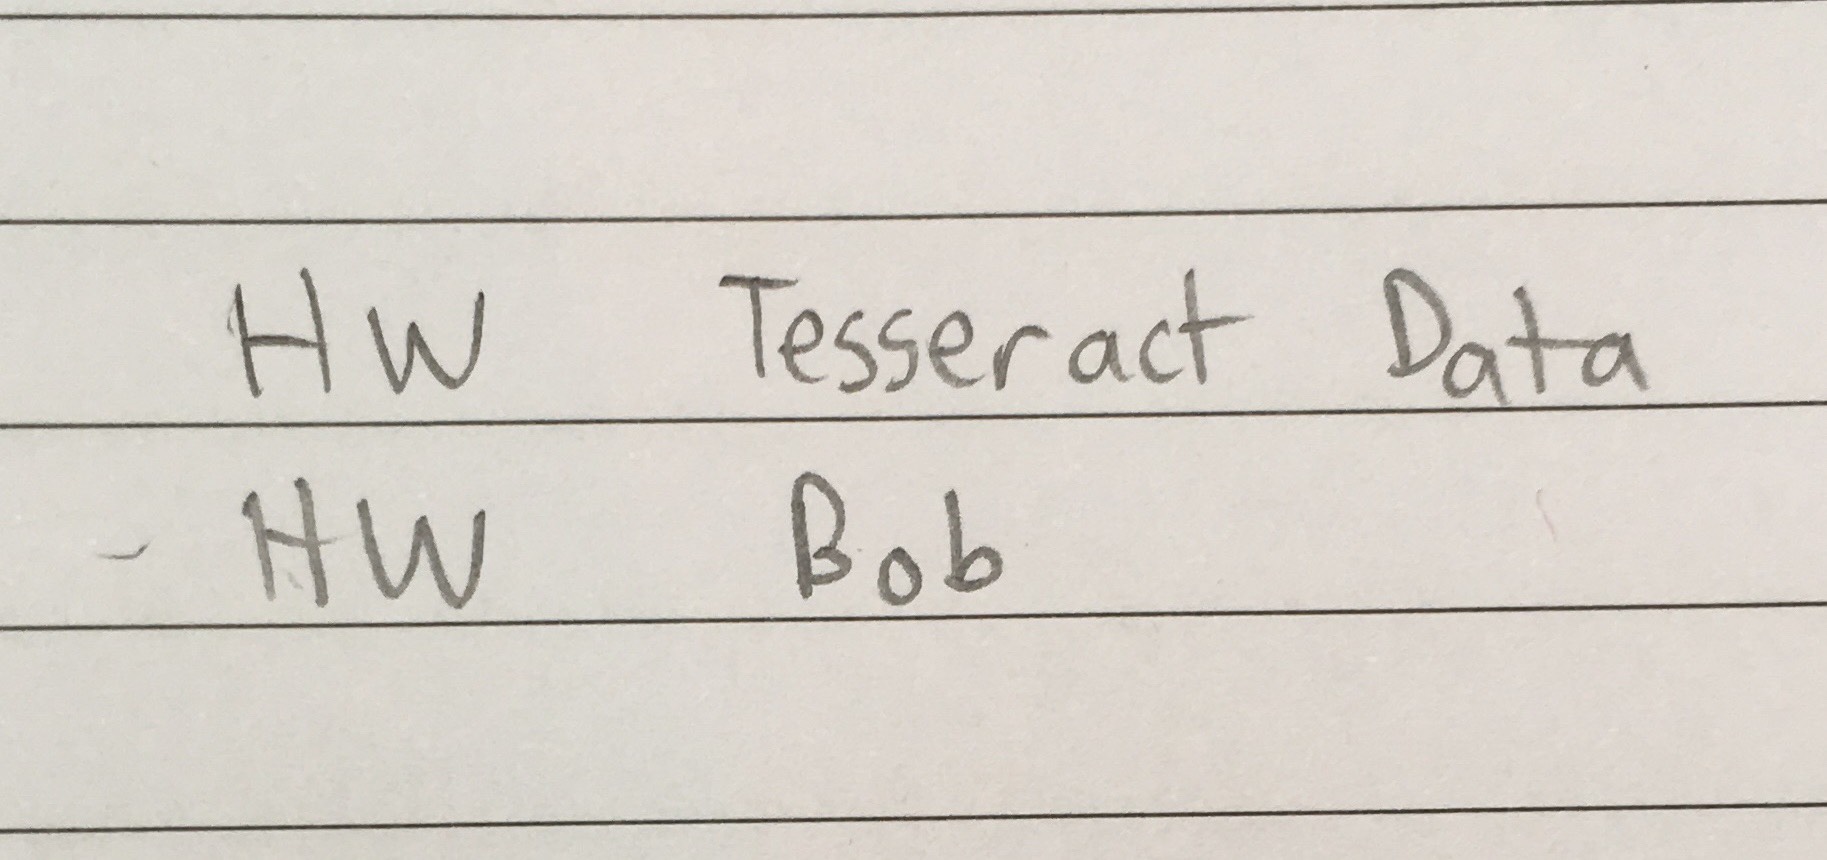 HW Tesseract Data
- HW Bob